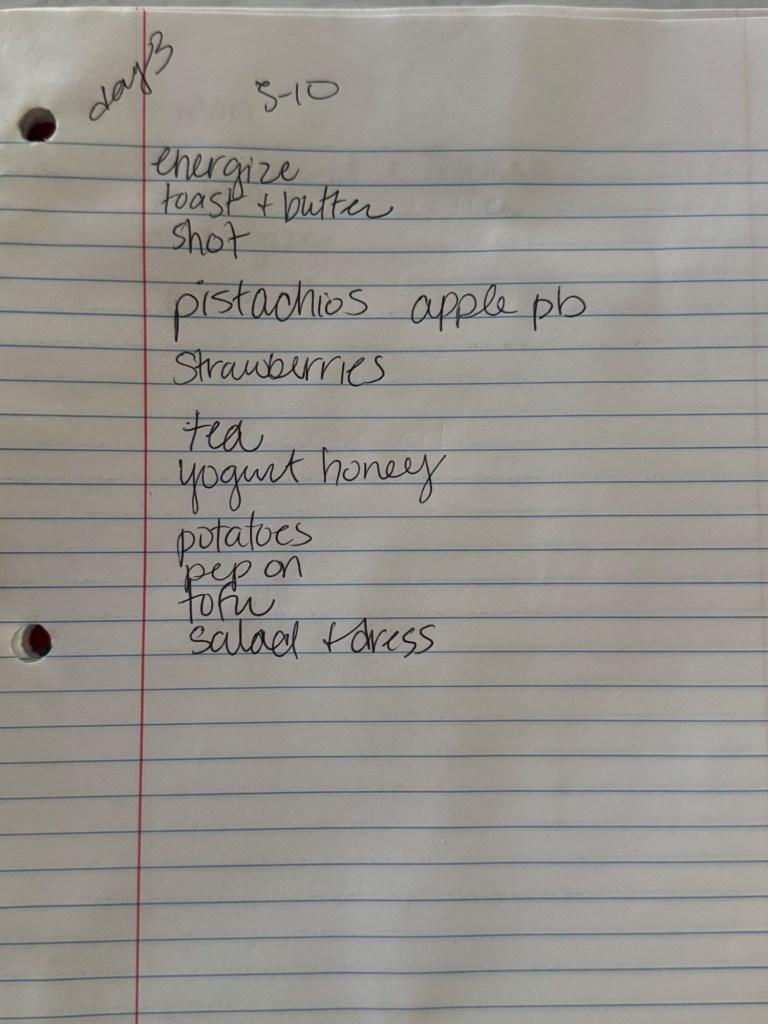 day 3
5-10
energize
toast + butter
shot
pistachios apple pb
strawberries
tea
yogurt honey
potatoes
pep on
tofu
salad + dress